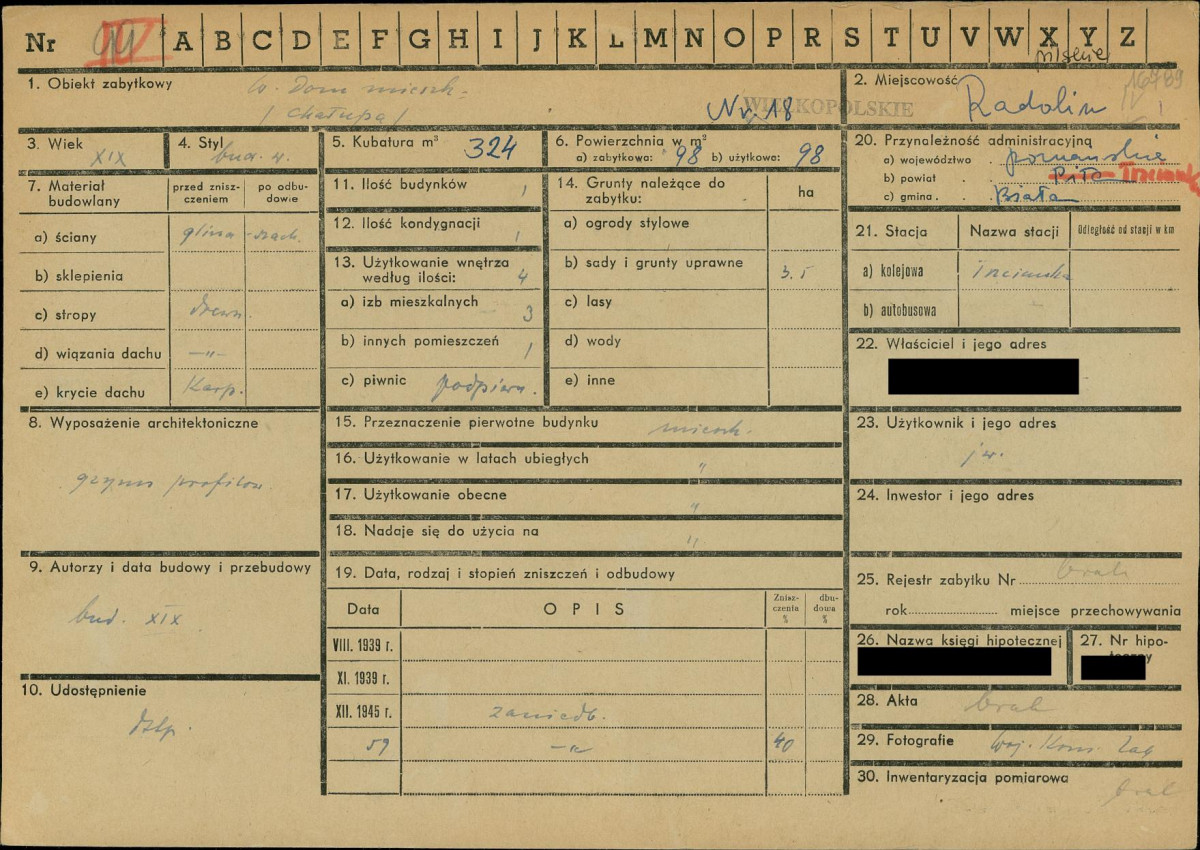 Nr IV A B C D E F G H I J K L M N O P R S T U V W X Y Z
pilskie
1. Obiekt zabytkowy Dom mieszk.
/ Chałupa / Nr. 18
WIELKOPOLSKIE
2. Miejscowość
Radolin
3. Wiek
XIX
4. Styl
bud. w.
5. Kubatura m³ 324
6. Powierzchnia w m²
a) zabytkowa: 98 b) użytkowa: 98
7. Materiał budowlany
przed zniszczeniem
po odbudowie
a) ściany glina - szach.
b) sklepienia
c) stropy drewn.
d) wiązania dachu —„—
e) krycie dachu Karp.
8. Wyposażenie architektoniczne
gzyms profilow.
9. Autorzy i data budowy i przebudowy
bud. XIX
10. Udostępnienie
dstp.
11. Ilość budynków 1
12. Ilość kondygnacji 1
13. Użytkowanie wnętrza
według ilości: 4
a) izb mieszkalnych 3
b) innych pomieszczeń 1
c) piwnic podpiwn.
14. Grunty należące do
zabytku:
ha
a) ogrody stylowe
b) sady i grunty uprawne 3.5
c) lasy
d) wody
e) inne
15. Przeznaczenie pierwotne budynku mieszk.
16. Użytkowanie w latach ubiegłych „
17. Użytkowanie obecne „
18. Nadaje się do użycia na „
19. Data, rodzaj i stopień zniszczeń i odbudowy
Data
OPIS
Zniszczenia %
dbudowa %
VIII. 1939 r.
XI. 1939 r.
XII. 1945 r. zaniedb.
59 —„ 40
20. Przynależność administracyjną
a) województwo poznańskie
b) powiat Piła Trzcianka
c) gmina Biała
21. Stacja
Nazwa stacji
Odległość od stacji w km
a) kolejowa Trzcianka
b) autobusowa
22. Właściciel i jego adres
23. Użytkownik i jego adres
jw.
24. Inwestor i jego adres
25. Rejestr zabytku Nr brak
rok miejsce przechowywania
26. Nazwa księgi hipotecznej
27. Nr hipo-
28. Akta brak
29. Fotografie Woj. Kons. Zab
30. Inwentaryzacja pomiarowa
brak